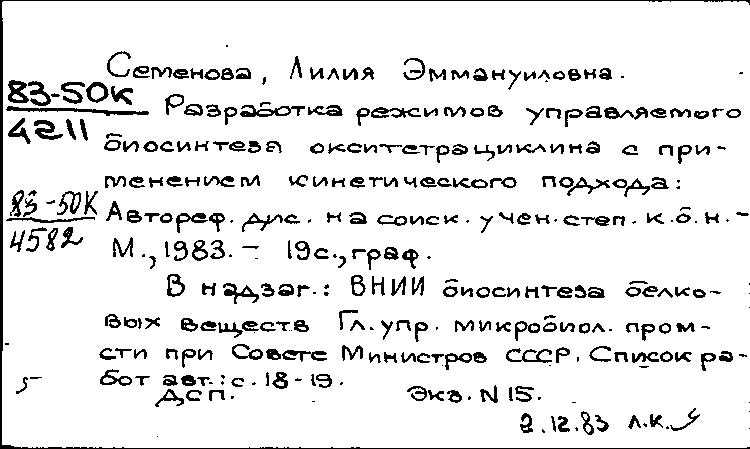 Семенова, Лилия Эммануиловна.
83-50К
4211
Разработка режимов управляемого
биосинтеза окситетрациклина с при-
менением кинетического подхода:
83-50К
4582
Автореф. дис. на соиск. учен. степ. к. б. н. -
М., 1983. - 19с., граф.
В надзаг.: ВНИИ биосинтеза белко-
вых веществ Гл. упр. микробиол. пром-
сти при Совете Министров СССР. Список ра-
бот авт.: с. 18-19.
5
ДСП. Экз. N 15.
2.12.83 Л.К.